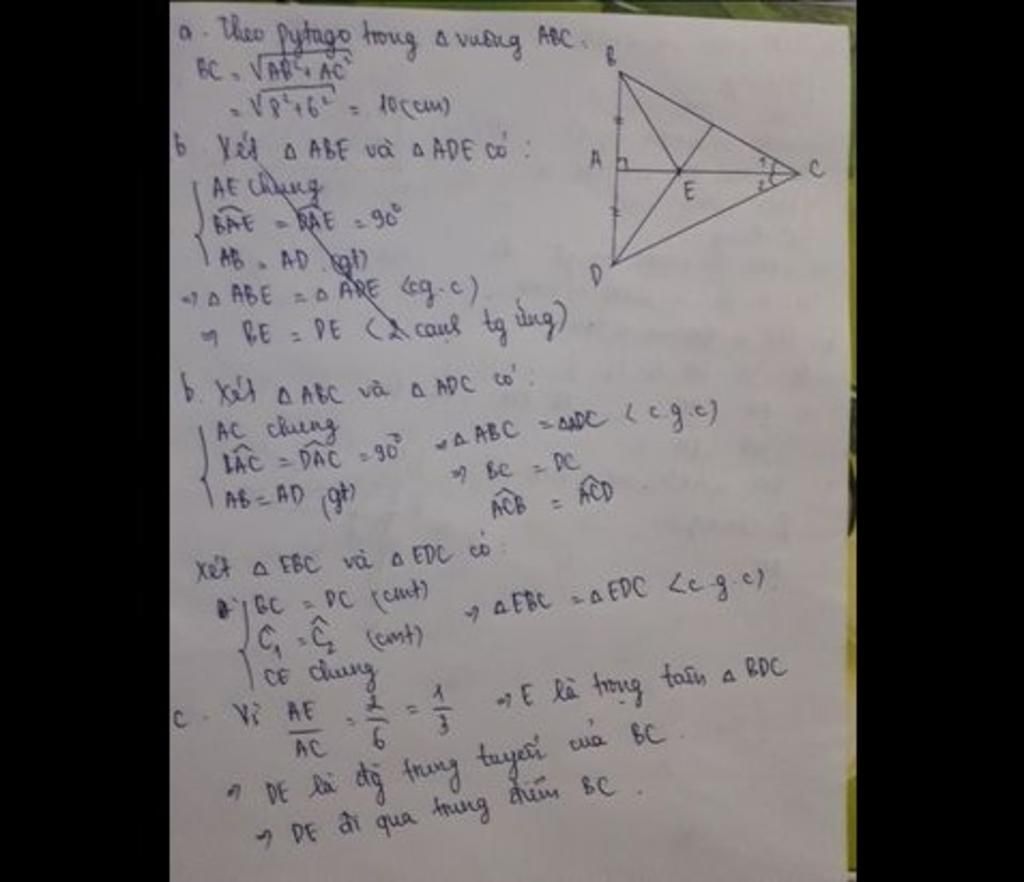 a. Theo pytago trong Δ vuông ABC.
BC = √AB² + AC²
= √8² + 6² = 10 (cm)
b Xét Δ ABE và Δ ADE có :
AE chung
BAE = DAE = 90°
AB = AD (gt)
⇒ Δ ABE = Δ ADE (cg.c)
⇒ BE = DE (2 cạnh tg ứng)
b. Xét Δ ABC và Δ ADC có :
AC chung
BAC = DAC = 90°
AB = AD (gt)
⇒ Δ ABC = Δ ADC (c.g.c)
⇒ BC = DC
ACB = ACD
Xét Δ EBC và Δ EDC có :
BC = DC (cmt)
Ĉ₁ = Ĉ₂ (cmt)
CE chung
⇒ Δ EBC = Δ EDC (c.g.c)
c. Vì AE/AC = 2/6 = 1/3 ⇒ E là trọng tâm Δ BDC
⇒ DE là độg trung tuyến của BC.
⇒ DE đi qua trung điểm BC.
B
A
E
1
2
C
D